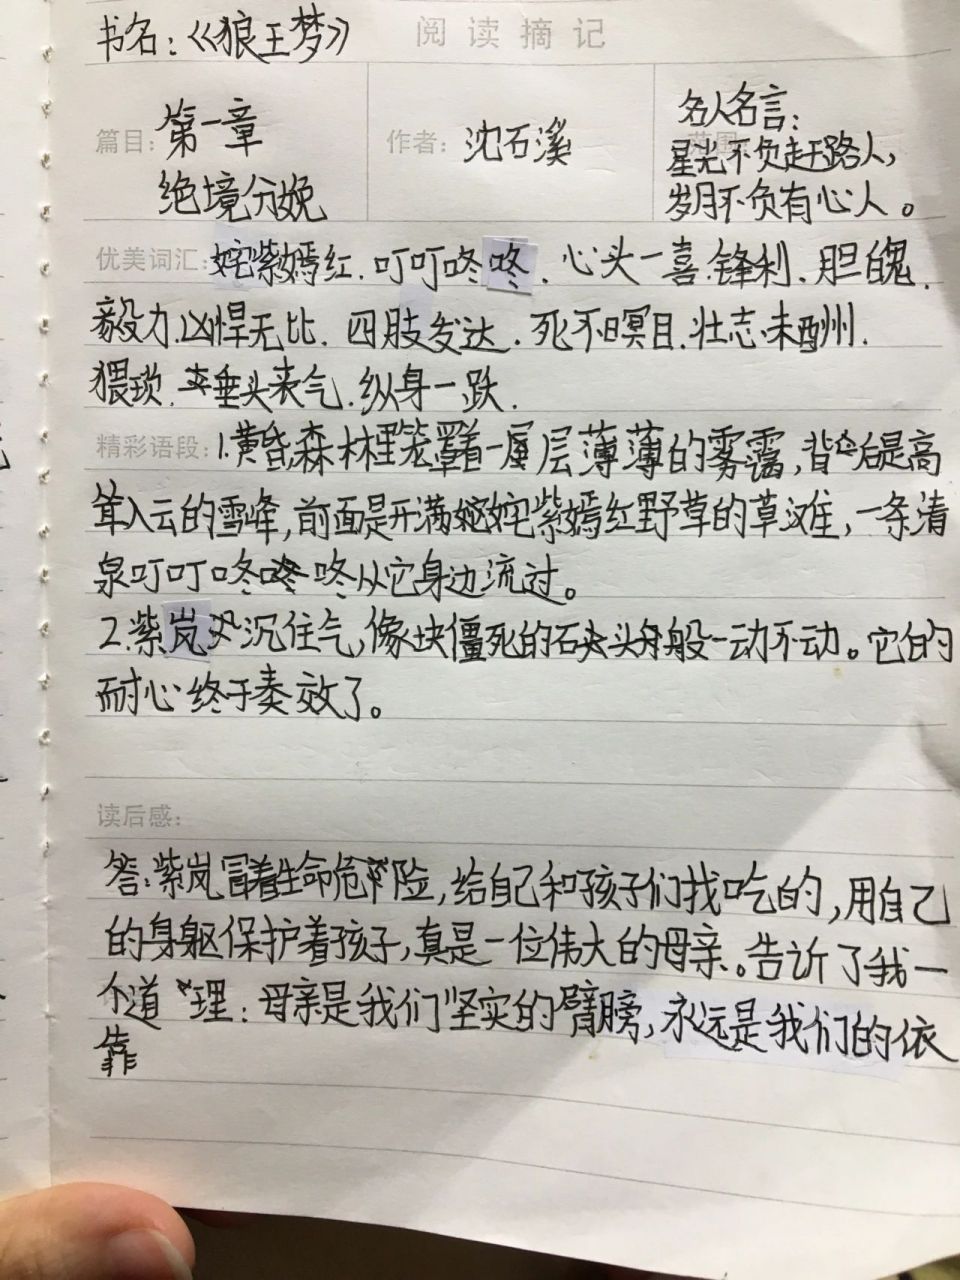 书名：《狼王梦》 阅读摘记
篇目：第一章 作者：沈石溪 名人名言：
绝境分娩 星光不负赶路人，
岁月不负有心人。
优美词汇：姹紫嫣红.叮叮咚咚.心头一喜.锋利.胆魄.
毅力.凶悍无比.四肢发达.死不瞑目.壮志未酬.
猥琐.垂头丧气.纵身一跃.
精彩语段：1.黄昏,森林里笼罩着一层层薄薄的雾霭,背后是高
耸入云的雪峰,前面是开满姹紫嫣红野草的草滩,一条清
泉叮叮咚咚从它身边流过。
2.紫岚沉住气,像块僵死的石头般一动不动。它的
耐心终于奏效了。
读后感：
答：紫岚冒着生命危险,给自己和孩子们找吃的,用自己
的身躯保护着孩子,真是一位伟大的母亲。告诉了我一
个道理：母亲是我们坚实的臂膀,永远是我们的依
靠